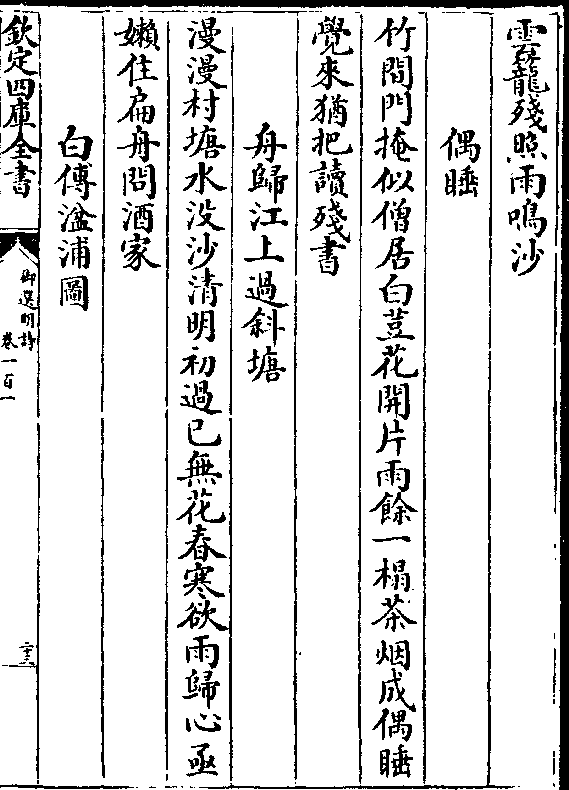 雲龍殘照雨鳴沙
偶睡
竹間門掩似僧居白荳花開片雨餘一榻茶烟成偶睡
覺來猶把讀殘書
舟歸江上過斜塘
漫漫村塘水没沙清明初過已無花春寒欲雨歸心亟
嬾住扁舟問酒家
白傅湓浦圖
欽定四庫全書
御選明詩
卷一百一